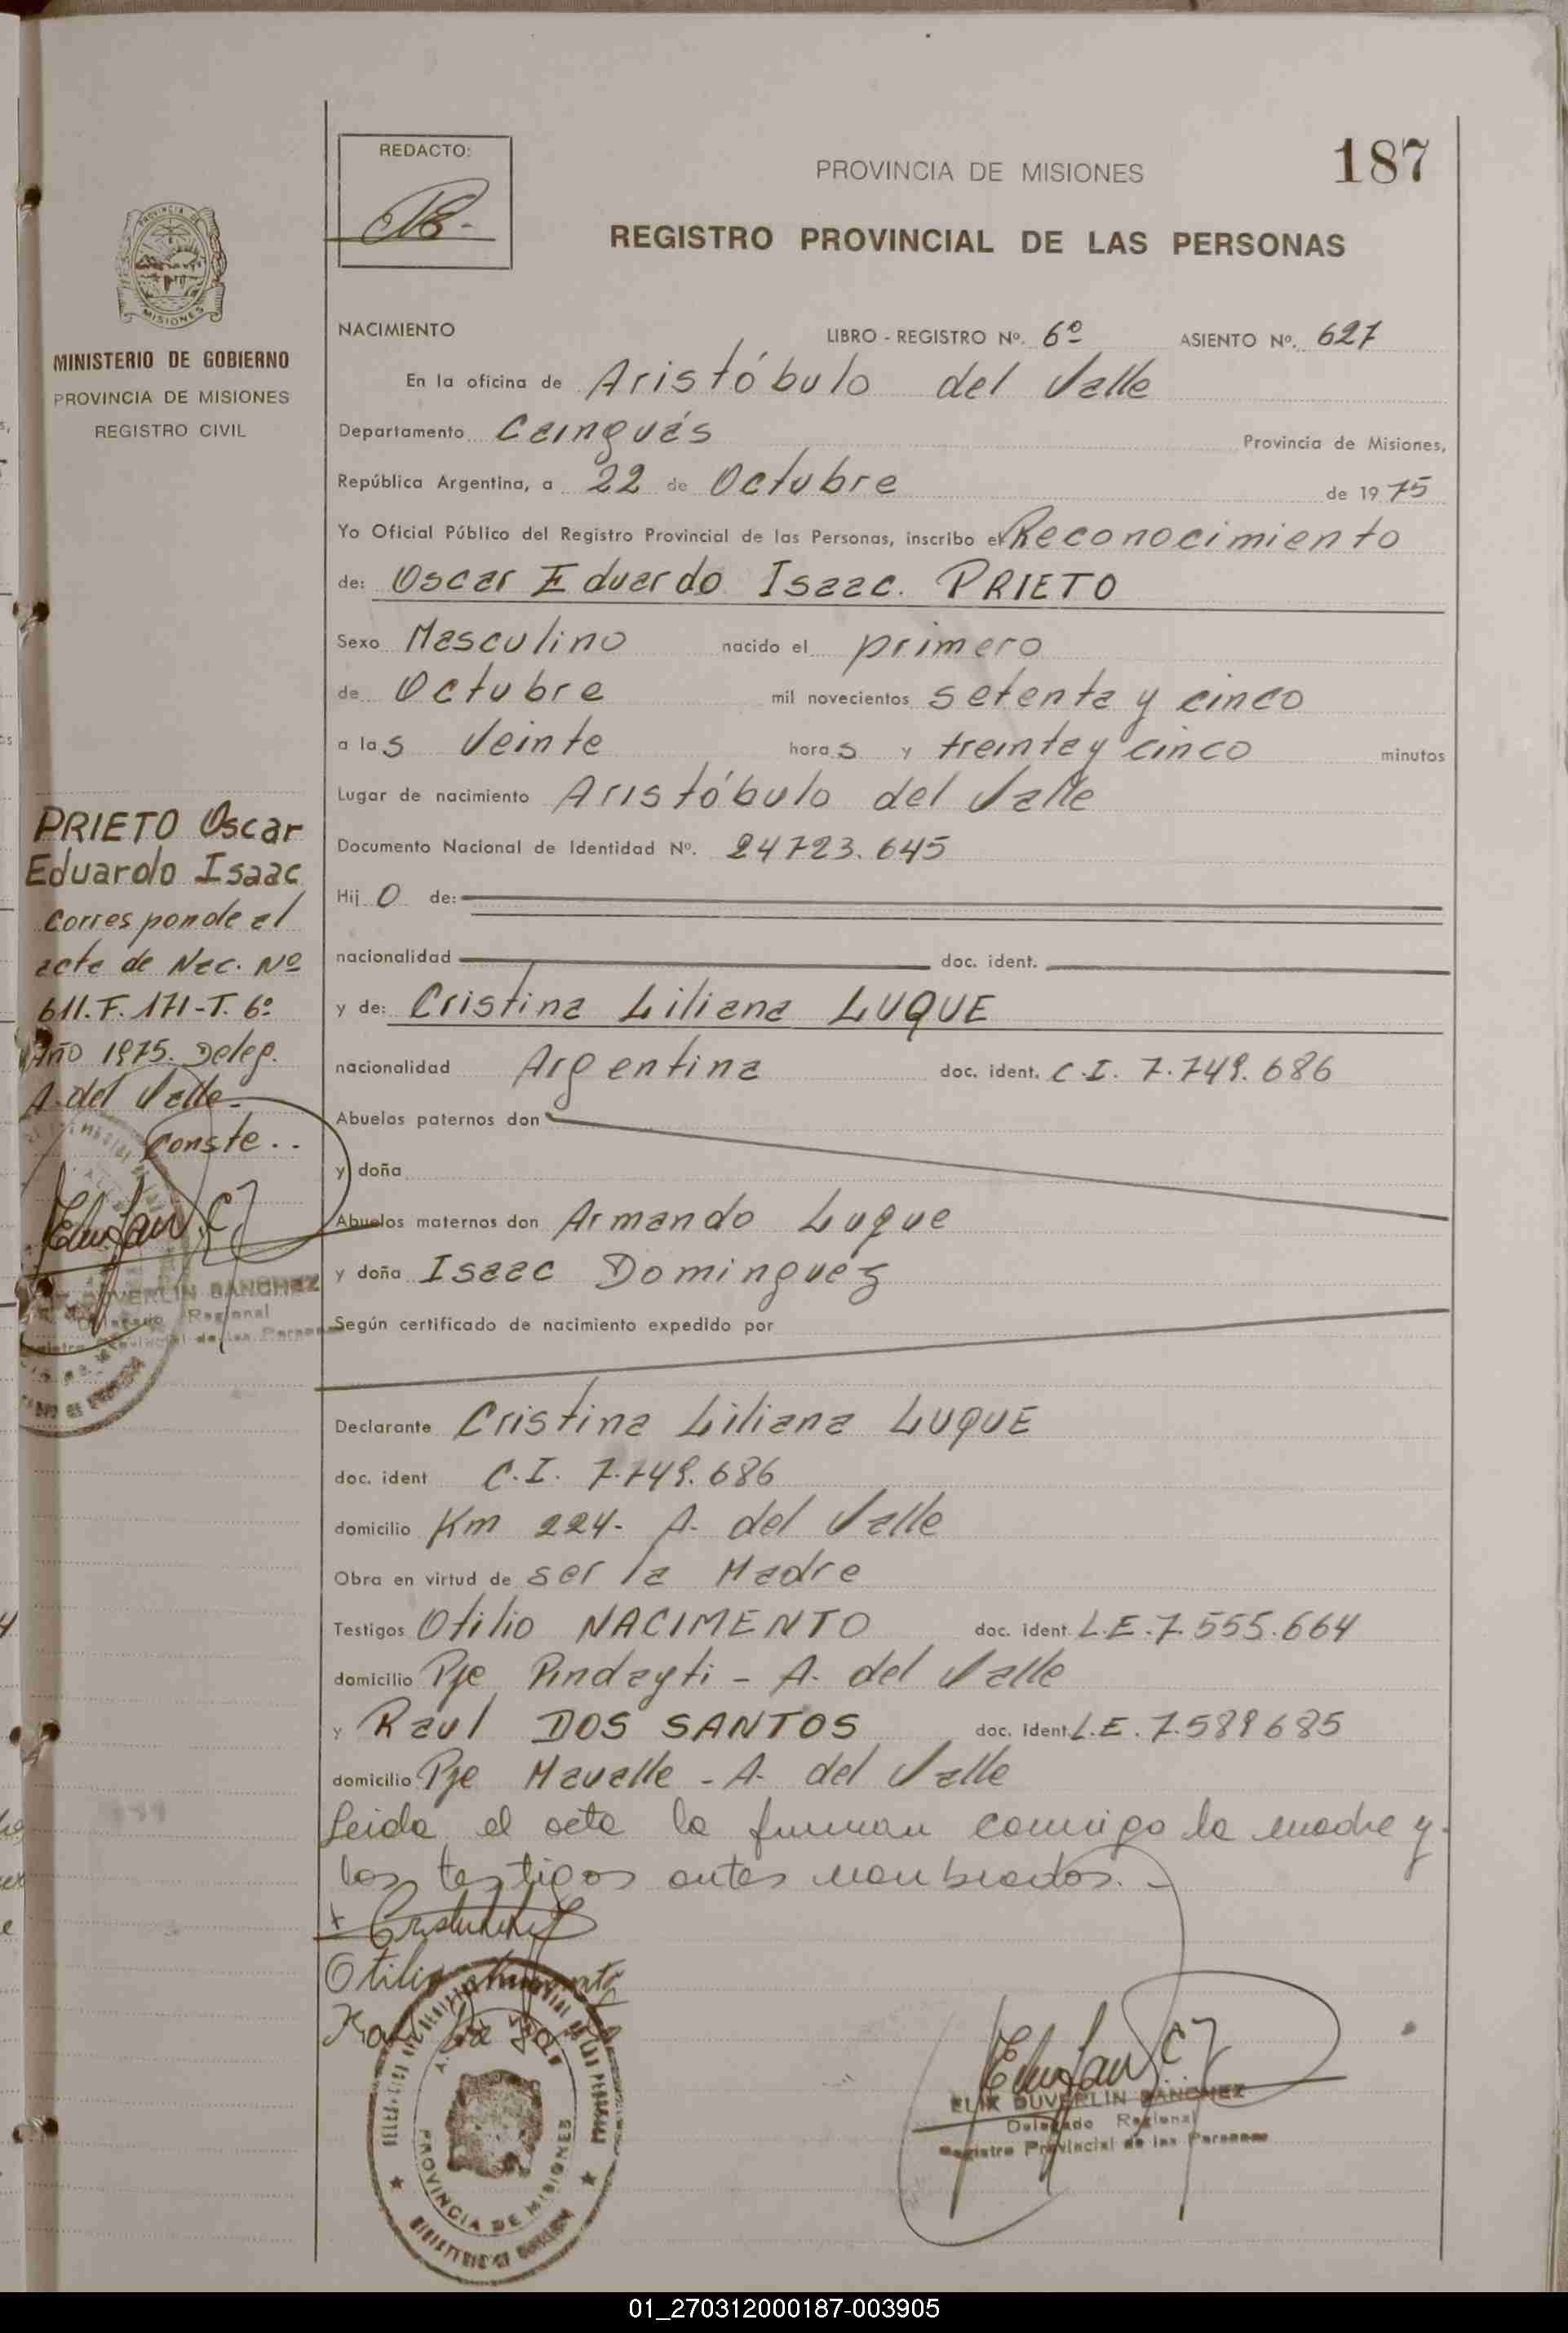 REDACTO:
PROVINCIA DE MISIONES
187
REGISTRO PROVINCIAL DE LAS PERSONAS
MINISTERIO DE GOBIERNO
PROVINCIA DE MISIONES
REGISTRO CIVIL
NACIMIENTO LIBRO - REGISTRO Nº. 6º ASIENTO Nº. 627
En la oficina de Aristóbulo del Valle
Departamento Cainguás Provincia de Misiones,
República Argentina, a 22 de Octubre de 1975
Yo Oficial Público del Registro Provincial de las Personas, inscribo el Reconocimiento
de: Oscar Eduardo Isaac. PRIETO
Sexo Masculino nacido el primero
de Octubre mil novecientos setenta y cinco
a las Veinte horas y treinta y cinco minutos
Lugar de nacimiento Aristóbulo del Valle
Documento Nacional de Identidad Nº. 24723.645
Hijo de:
nacionalidad doc. ident.
y de: Cristina Liliana LUQUE
nacionalidad Argentina doc. ident. C.I. 7.749.686
Abuelos paternos don
y doña
Abuelos maternos don Armando Luque
y doña Isaac Dominguez
Según certificado de nacimiento expedido por
Declarante Cristina Liliana LUQUE
doc. ident C.I. 7.749.686
domicilio Km 224- A. del Valle
Obra en virtud de ser la Madre
Testigos Otilio NACIMENTO doc. ident. L.E. 7.555.664
domicilio Pje Pindayti - A. del Valle
y Raul DOS SANTOS doc. ident. L.E. 7.589685
domicilio Pje Mavalle - A. del Valle
Leida el acta la firman conmigo la madre y
los testigos antes nombrados. -
PRIETO Oscar
Eduardo Isaac
Corresponde al
acta de Nac. Nº
611. F. 171-T. 6º
Año 1975. Deleg.
A. del Valle-
Conste..
DUVERLIN SANCHEZ
Delegado Regional
Registro Provincial de las Personas
Otilio
PROVINCIA DE MISIONES
ELIX DUVERLIN SANCHEZ
Delegado Regional
Registro Provincial de las Personas
01_270312000187-003905